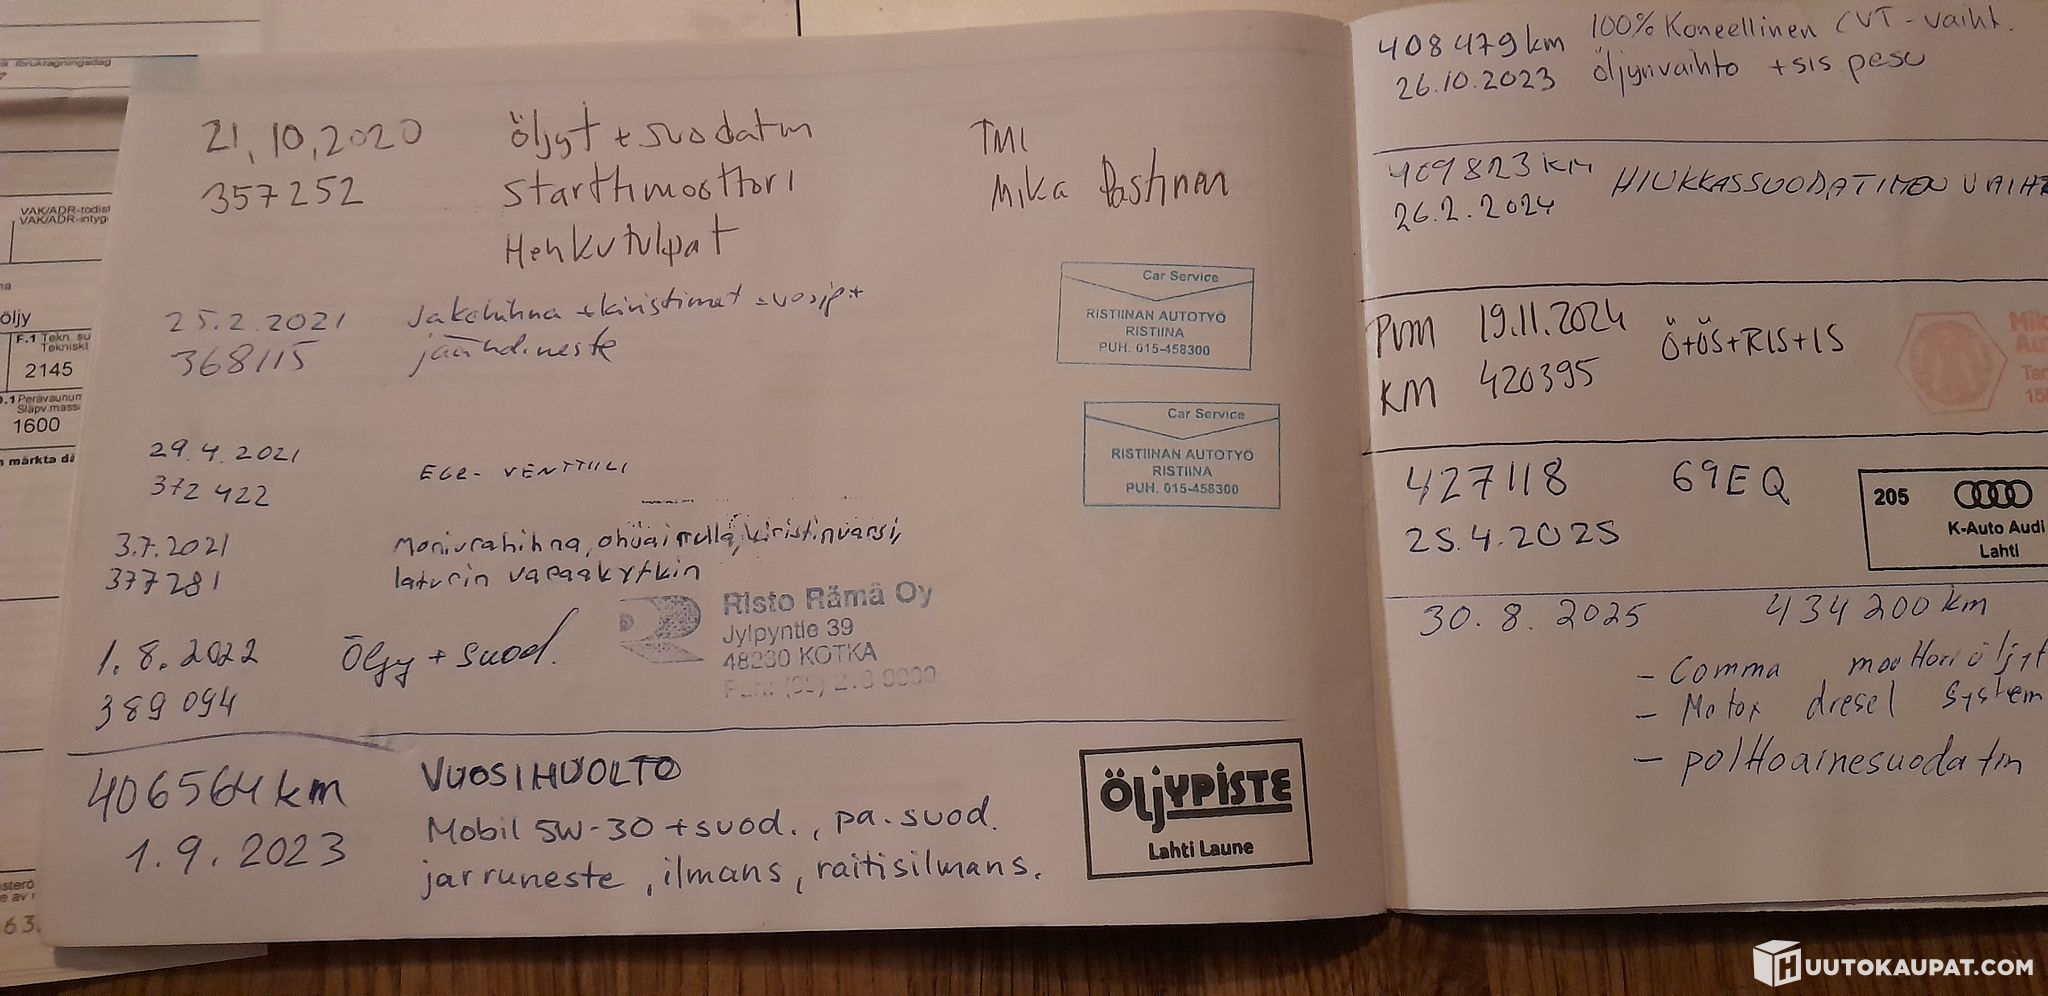 ibruktagningsdag
VAK/ADR-todist
VAK/ADR-intyg
öljy
F.1 Tekn. su
Tekniskt
2145
Perävaunun
Släpv.massa
1600
n märkta då
63.
21.10.2020 öljyt + suodatin TMI
357252 starttimoottori Mika
Hehkutulpat
25.2.2021 Jakohihna + kiristimet + vesip +
368115 jäähd.neste
Car Service
RISTIINAN AUTOTYÖ
RISTIINA
PUH. 015-458300
29.4.2021
372422 EGR-VENTTIILI
Car Service
RISTIINAN AUTOTYÖ
RISTIINA
PUH. 015-458300
3.7.2021 Moniurahihna, ohjairulla, kiristinvarsi,
377281 laturin vapaakytkin
Risto Rämä Oy
Jylpyntie 39
48230 KOTKA
1.8.2022 Öljy + suod.
389094
406564 km VUOSIHUOLTO
1.9.2023 Mobil 5W-30 + suod., pa.suod.
jarruneste, ilmans, raitisilmans.
ÖLJYPISTE
Lahti Laune
408479 km 100% Koneellinen CVT-vaiht.
26.10.2023 öljynvaihto + sis pesu
409823 KM HIUKKASSUODATIMEN VAIHT
26.2.2024
PVM 19.11.2024 Ö+ÖS+RIS+IS
KM 420395
427118 69EQ
25.4.2025
205
K-Auto Audi
Lahti
30.8.2025 434200 km
- Comma moottoriöljyt
- Motox diesel system
- polttoainesuodatin
HUUTOKAUPAT.COM